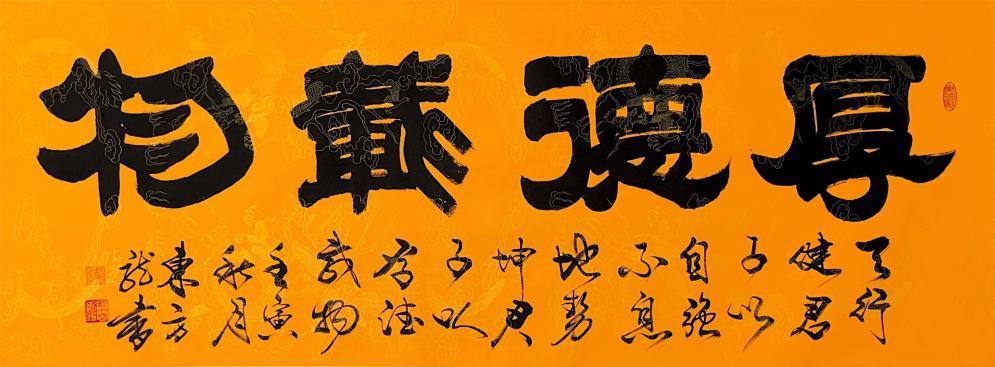 厚德載物
天行
健君
子以
自強
不息
地勢
坤君
子以
厚德
載物
壬寅
秋月
東方
龍書